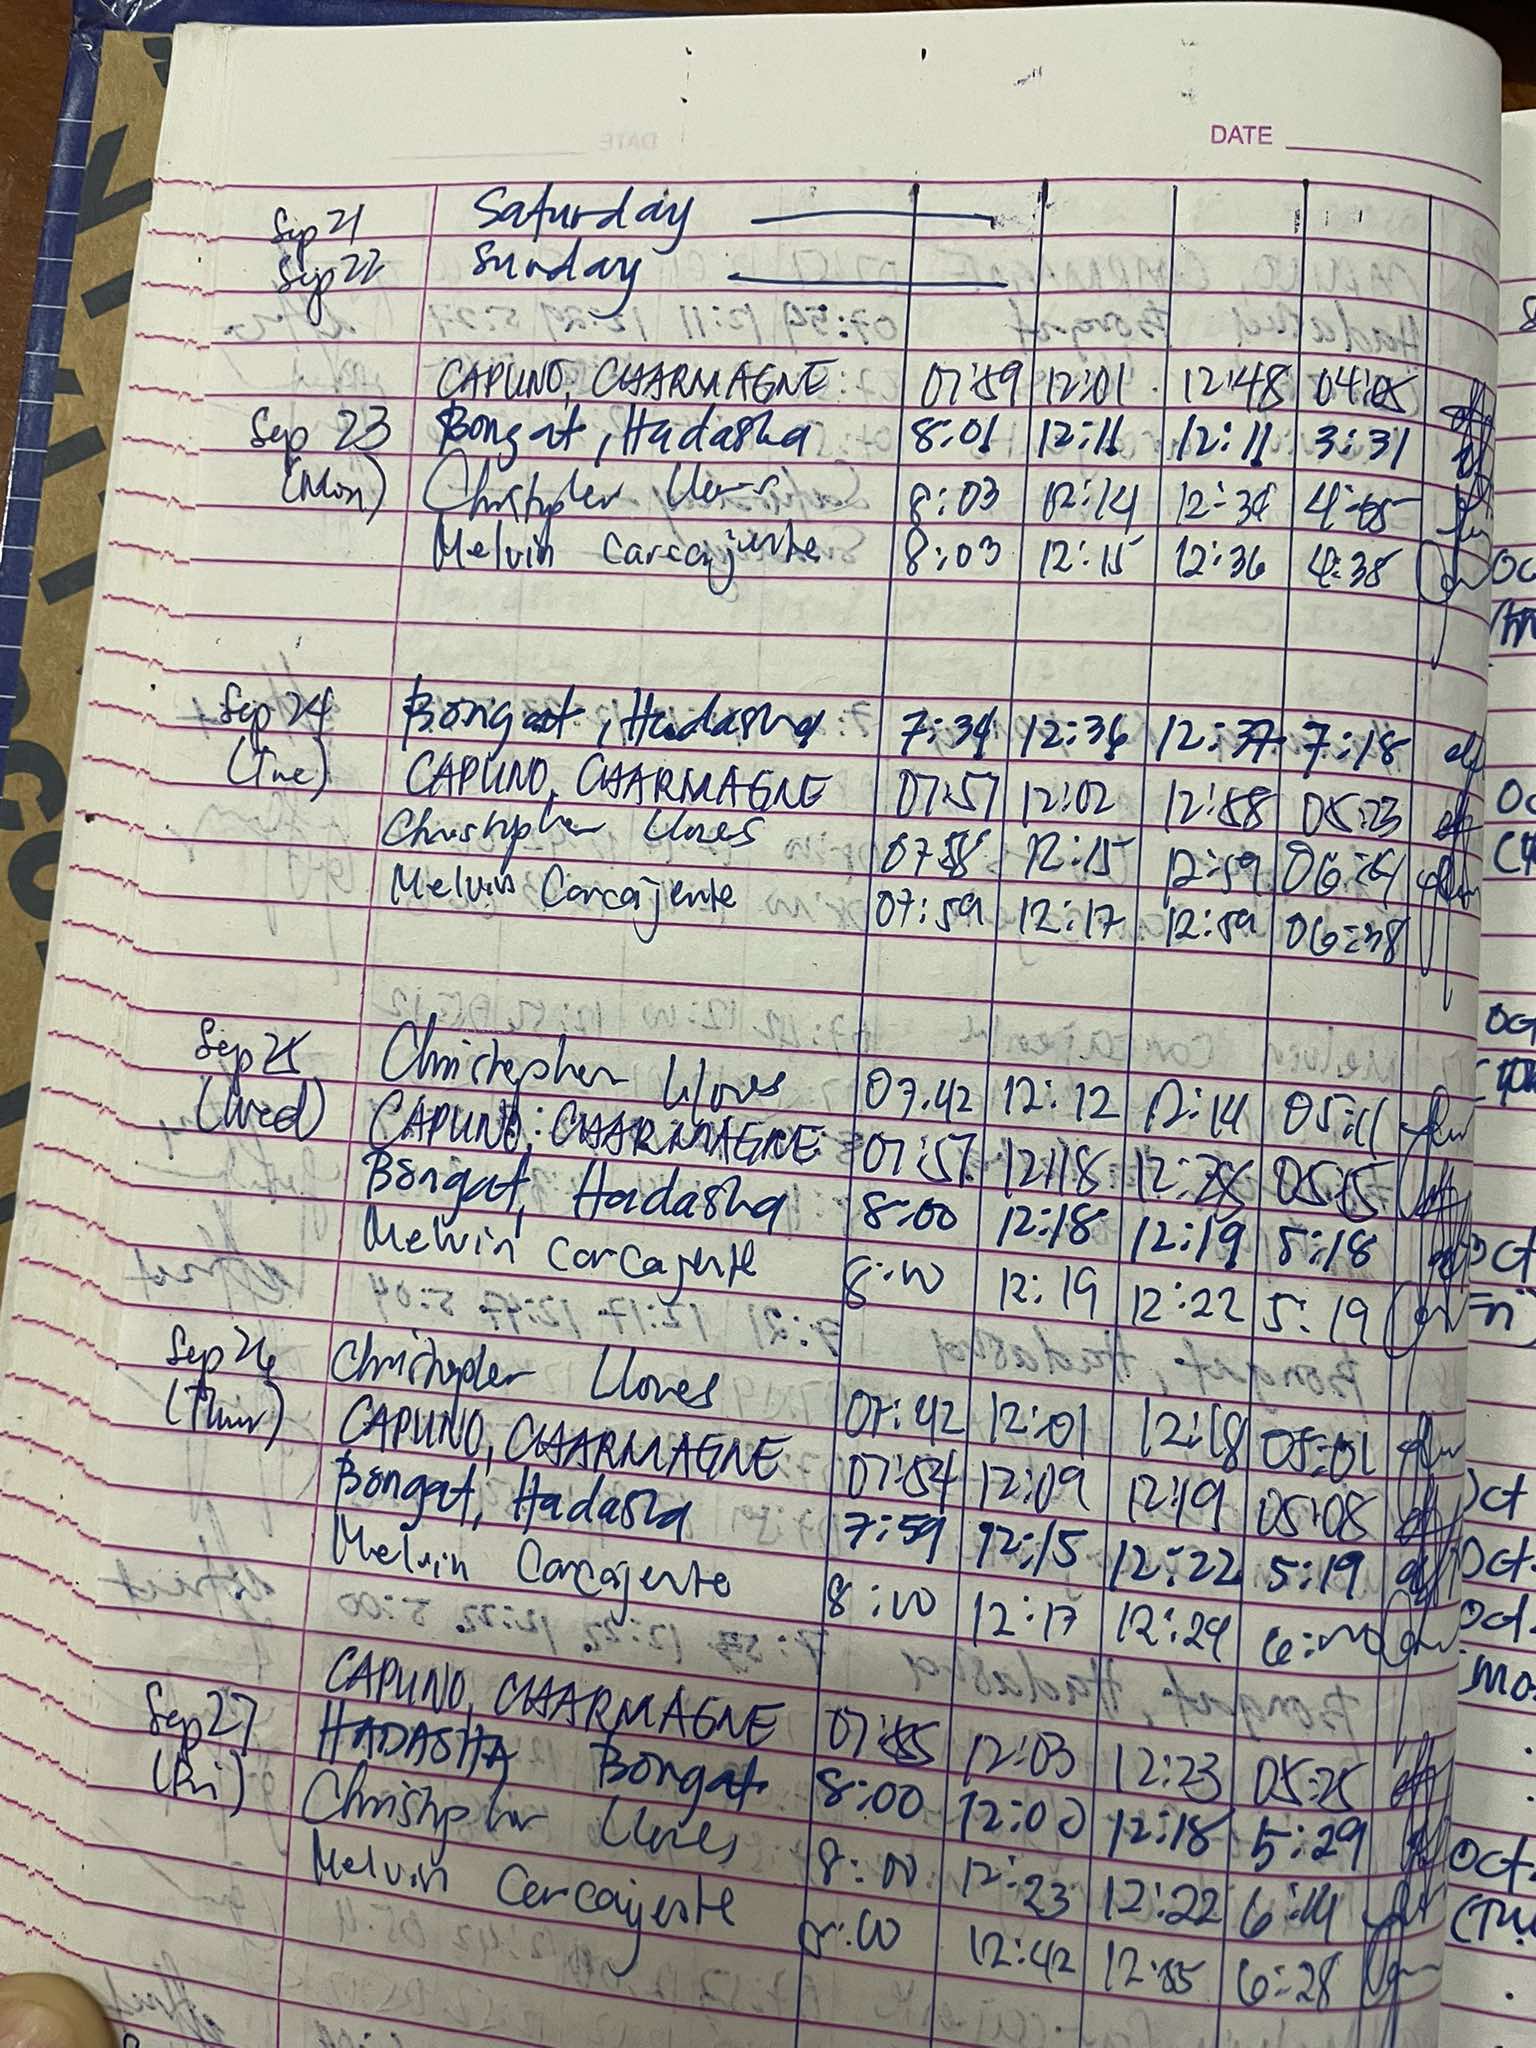 DATE
Sep 21 Saturday
Sep 22 Sunday
CAPUNO, CHARMAGNE 07:59 12:01 12:48 04:05
Sep 23 Bongat, Hadasha 8:01 12:11 12:11 3:31
(Mon) Christopher Llores 8:03 12:14 12:34 4:05
Melvin Carcajente 8:03 12:15 12:36 4:38
Sep 24 Bongat, Hadasha 7:34 12:36 12:37 7:18
(Tue) CAPUNO, CHARMAGNE 07:57 12:02 12:58 05:23
Christopher Llores 07:58 12:15 12:59
Melvin Carcajente 07:59 12:17 12:59 06:38
Sep 25 Christopher Llores 07:42 12:12 12:14 05:11
(Wed) CAPUNO, CHARMAGNE 07:57 12:18 12:28 05:15
Bongat, Hadasha 8:00 12:18 12:19 5:18
Melvin Carcajente 8:00 12:19 12:22 5:19
Sep 26 Christopher Llores 07:42 12:01 12:18 05:01
(Thur) CAPUNO, CHARMAGNE 07:54 12:09 12:19 05:08
Bongat, Hadasha 7:59 12:15 12:22 5:19
Melvin Carcajente 8:00 12:17 12:29 6:00
CAPUNO, CHARMAGNE 07:55 12:03 12:23 05:25
Sep 27 HADASHA Bongat 8:00 12:00 12:18 5:29
(Fri) Christopher Llores 8:00 12:23 12:22 6:14
Melvin Carcajente 8:00 12:42 12:55 6:28